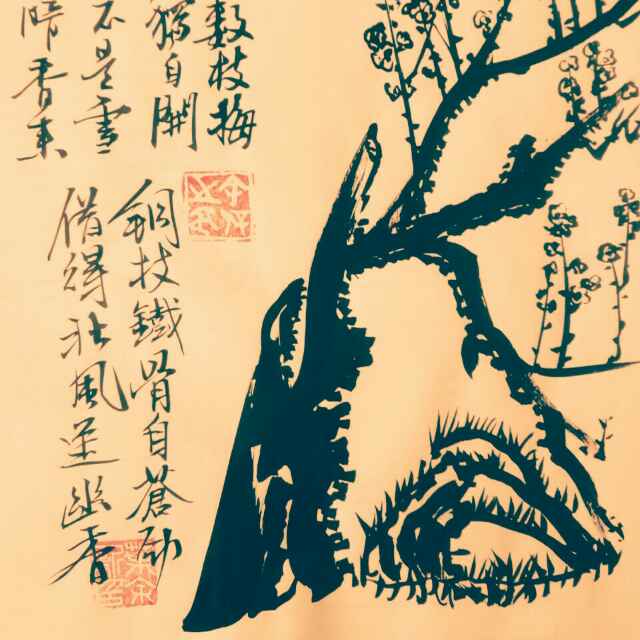 數枝梅
獨自開
不是雪
暗香来
銅枝鐵骨自蒼勁
借得北風送幽香